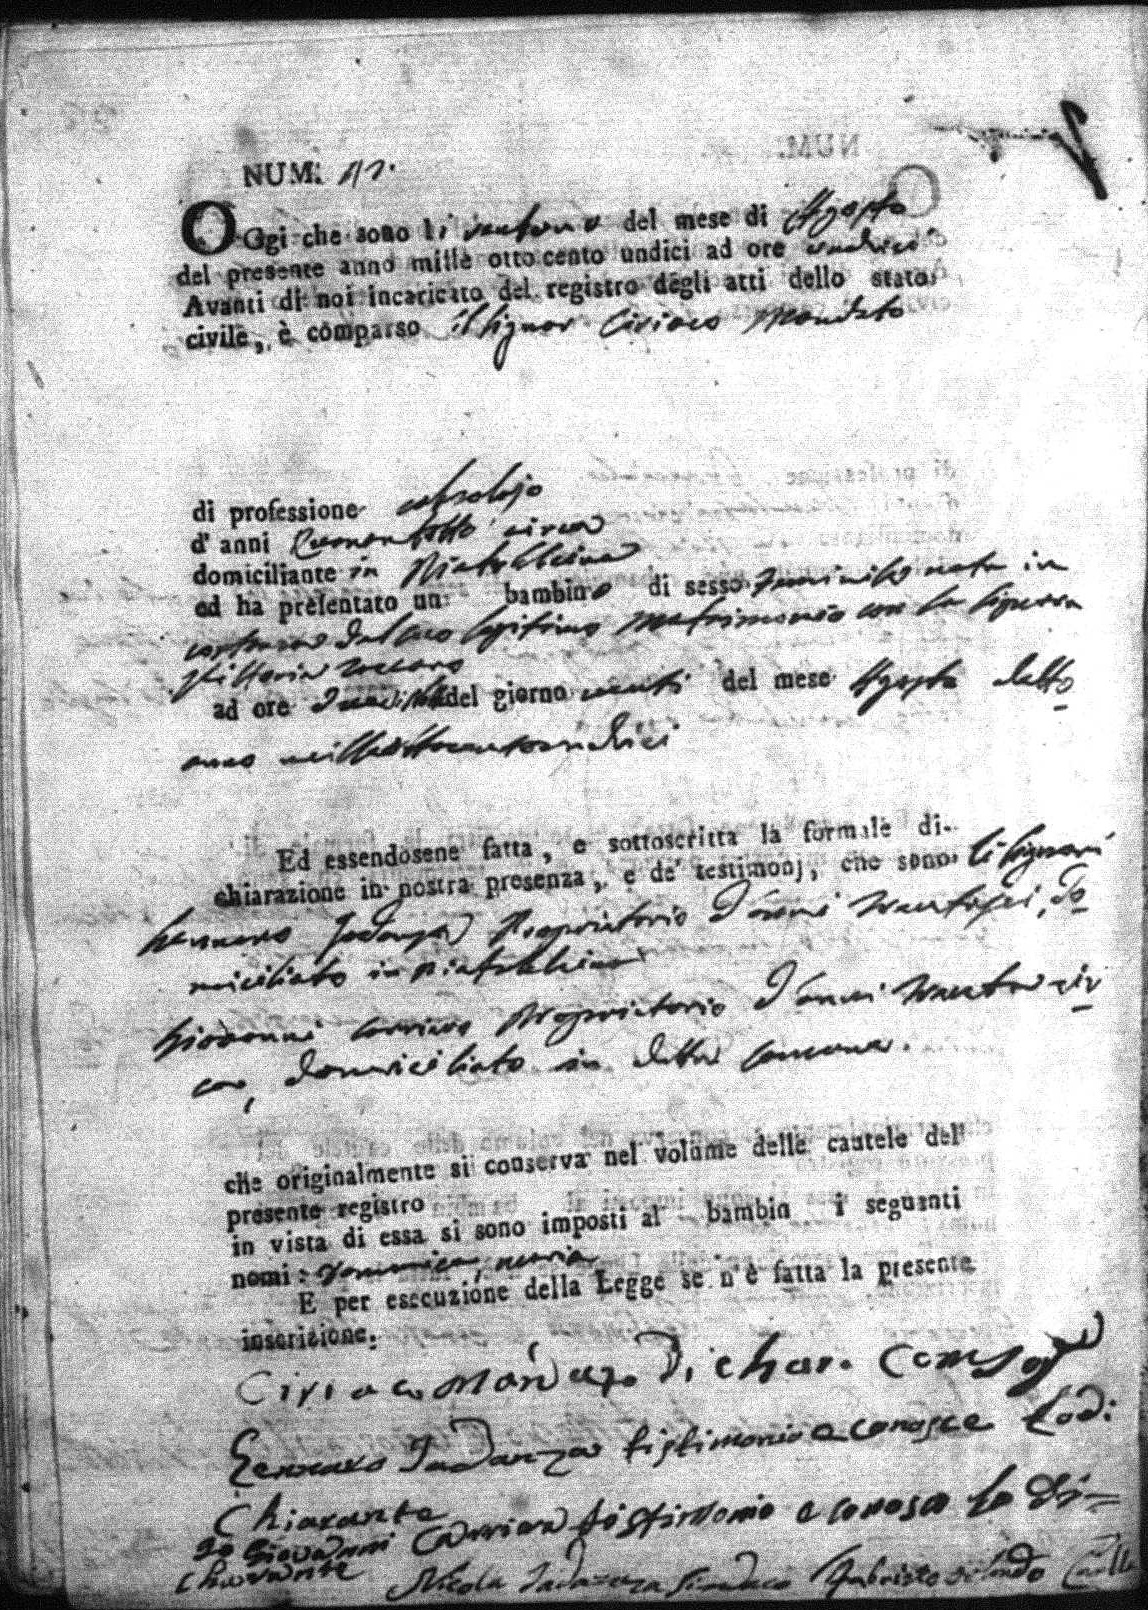 NUM.
Oggi che sono li ventuno del mese di Agosto
del presente anno mille otto cento undici ad ore undici
Avanti di noi incaricato del registro degli atti dello stato
civile, è comparso il signor Ciriaco Mandato
di professione
d' anni circa
domiciliante in Pietrelcina
ed ha presentato un bambin di sesso nata in
dal suo legitimo matrimonio con la signora
Vittoria
ad ore del giorno venti del mese Agosto detto
anno milleottocentoundici
Ed essendosene fatta, e sottoscritta la formale di-
chiarazione in nostra presenza, e de' testimonj, che sono li signori
Gennaro Iadanza Proprietario d'anni trentasei, do
miciliato in Pietrelcina
Giovanni Proprietario d'anni trenta cir
ca, domiciliato in detta comune.
che originalmente si conserva nel volume delle cautele dell'
presente registro
in vista di essa si sono imposti al bambin i seguenti
nomi: Domenica, maria
E per esecuzione della Legge se n'è fatta la presente
inscrizione.
Ciriaco Mandato
Gennaro Iadanza tistimonio e conosce lo di:
Chiarante
Io Giovanni tistimonio e conosco lo Di=
chiarante
Nicola Iadanza Sindaco